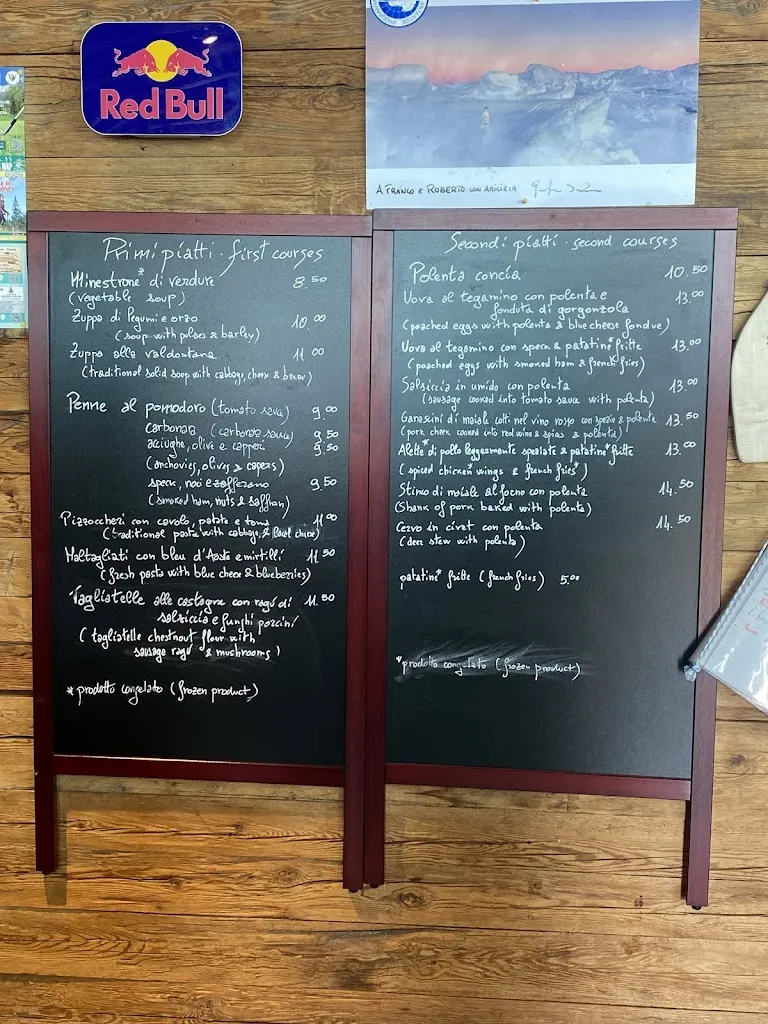 Red Bull
A FRANCO E ROBERTO CON AMICIZIA
Primi piatti - first courses
Minestrone* di verdure 8.50
(vegetable soup)
Zuppa di legumi e orzo 10.00
(soup with pulses & barley)
Zuppa alla valdostana 11.00
(traditional solid soup with cabbage, cheese & bread)
Penne al pomodoro (tomato sauce) 9.00
carbonara (carbonara sauce) 9.50
acciughe, olive e capperi 9.50
(anchovies, olives & capers)
speck, noci e zafferano 9.50
(smoked ham, nuts & saffran)
Pizzoccheri con cavolo, patata e toma 11.00
(traditional pasta with cabbage, & local cheese)
Maltagliati con bleu d'Aoste e mirtilli 11.50
(fresh pasta with blue cheese & blueberries)
Tagliatelle alle castagne con ragù di 11.50
salsiccia e funghi porcini
(tagliatelle chestnut flour with
sausage ragù & mushrooms)
*prodotto congelato (frozen product)
Secondi piatti - second courses
Polenta concia 10.50
Uova al tegamino con polenta e 13.00
fonduta di gorgonzola
(poached eggs with polenta & blue cheese fondue)
Uova al tegamino con speck & patatine* fritte 13.00
(poached eggs with smoked ham & french* fries)
Salsiccia in umido con polenta 13.00
(sausage cooked into tomato sauce with polenta)
Ganascini di maiale cotti nel vino rosso con spezie & polenta 13.50
(pork cheek cooked into red wine & spices & polenta)
Alette* di pollo leggermente speziate & patatine* fritte 13.00
(spiced chicken* wings & french fries*)
Stinco di maiale al forno con polenta 14.50
(Shank of pork baked with polenta)
Cervo in civet con polenta 14.50
(deer stew with polenta)
patatine* fritte (french fries) 5.00
*prodotto congelato (frozen product)